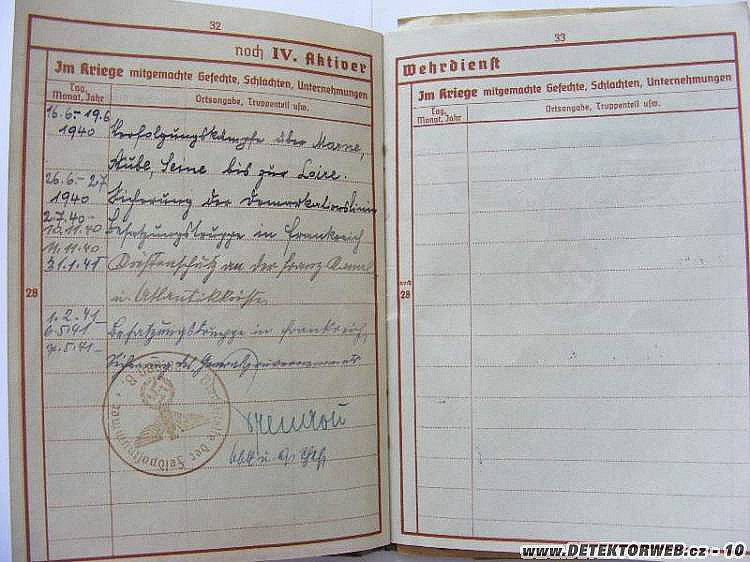 32
noch IV. Aktiver
Im Kriege mitgemachte Gefechte, Schlachten, Unternehmungen
Tag, Monat, Jahr
Ortsangabe, Truppenteil usw.
16.6.-19.6
1940
Verfolgungskämpfe über Marne,
Aube, Seine bis zur Loire.
26.6.-2.7
1940
Sicherung der Demarkationslinie
2.7.40-
10.11.40
Besatzungstruppe in Frankreich
11.11.40
31.1.41
Küstenschutz an der franz. Kanal
u. Atlantikküste
1.2.41
6.5.41
Besatzungstruppe in Frankreich,
7.5.41-
Sicherung des Generalgouvernements
28
Dienststelle der Feldpostnummer
33
Wehrdienst
Im Kriege mitgemachte Gefechte, Schlachten, Unternehmungen
Tag, Monat, Jahr
Ortsangabe, Truppenteil usw.
noch
28
www.DETEKTORWEB.cz - 10